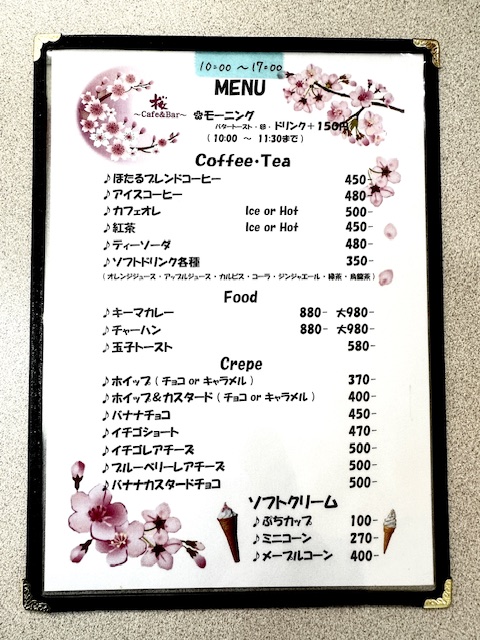 10:00 ～ 17:00
MENU
桜
～Cafe&Bar～
✿モーニング
バタートースト・卵・ドリンク＋150円
(10:00 ～ 11:30まで)
Coffee・Tea
♪ほたるブレンドコーヒー 450-
♪アイスコーヒー 480-
♪カフェオレ Ice or Hot 500-
♪紅茶 Ice or Hot 450-
♪ティーソーダ 480-
♪ソフトドリンク各種 350-
(オレンジジュース・アップルジュース・カルピス・コーラ・ジンジャエール・緑茶・烏龍茶)
Food
♪キーマカレー 880- 大980-
♪チャーハン 880- 大980-
♪玉子トースト 580-
Crepe
♪ホイップ(チョコ or キャラメル) 370-
♪ホイップ&カスタード(チョコ or キャラメル) 400-
♪バナナチョコ 450-
♪イチゴショート 470-
♪イチゴレアチーズ 500-
♪ブルーベリーレアチーズ 500-
♪バナナカスタードチョコ 500-
ソフトクリーム
♪ぷちカップ 100-
♪ミニコーン 270-
♪メープルコーン 400-